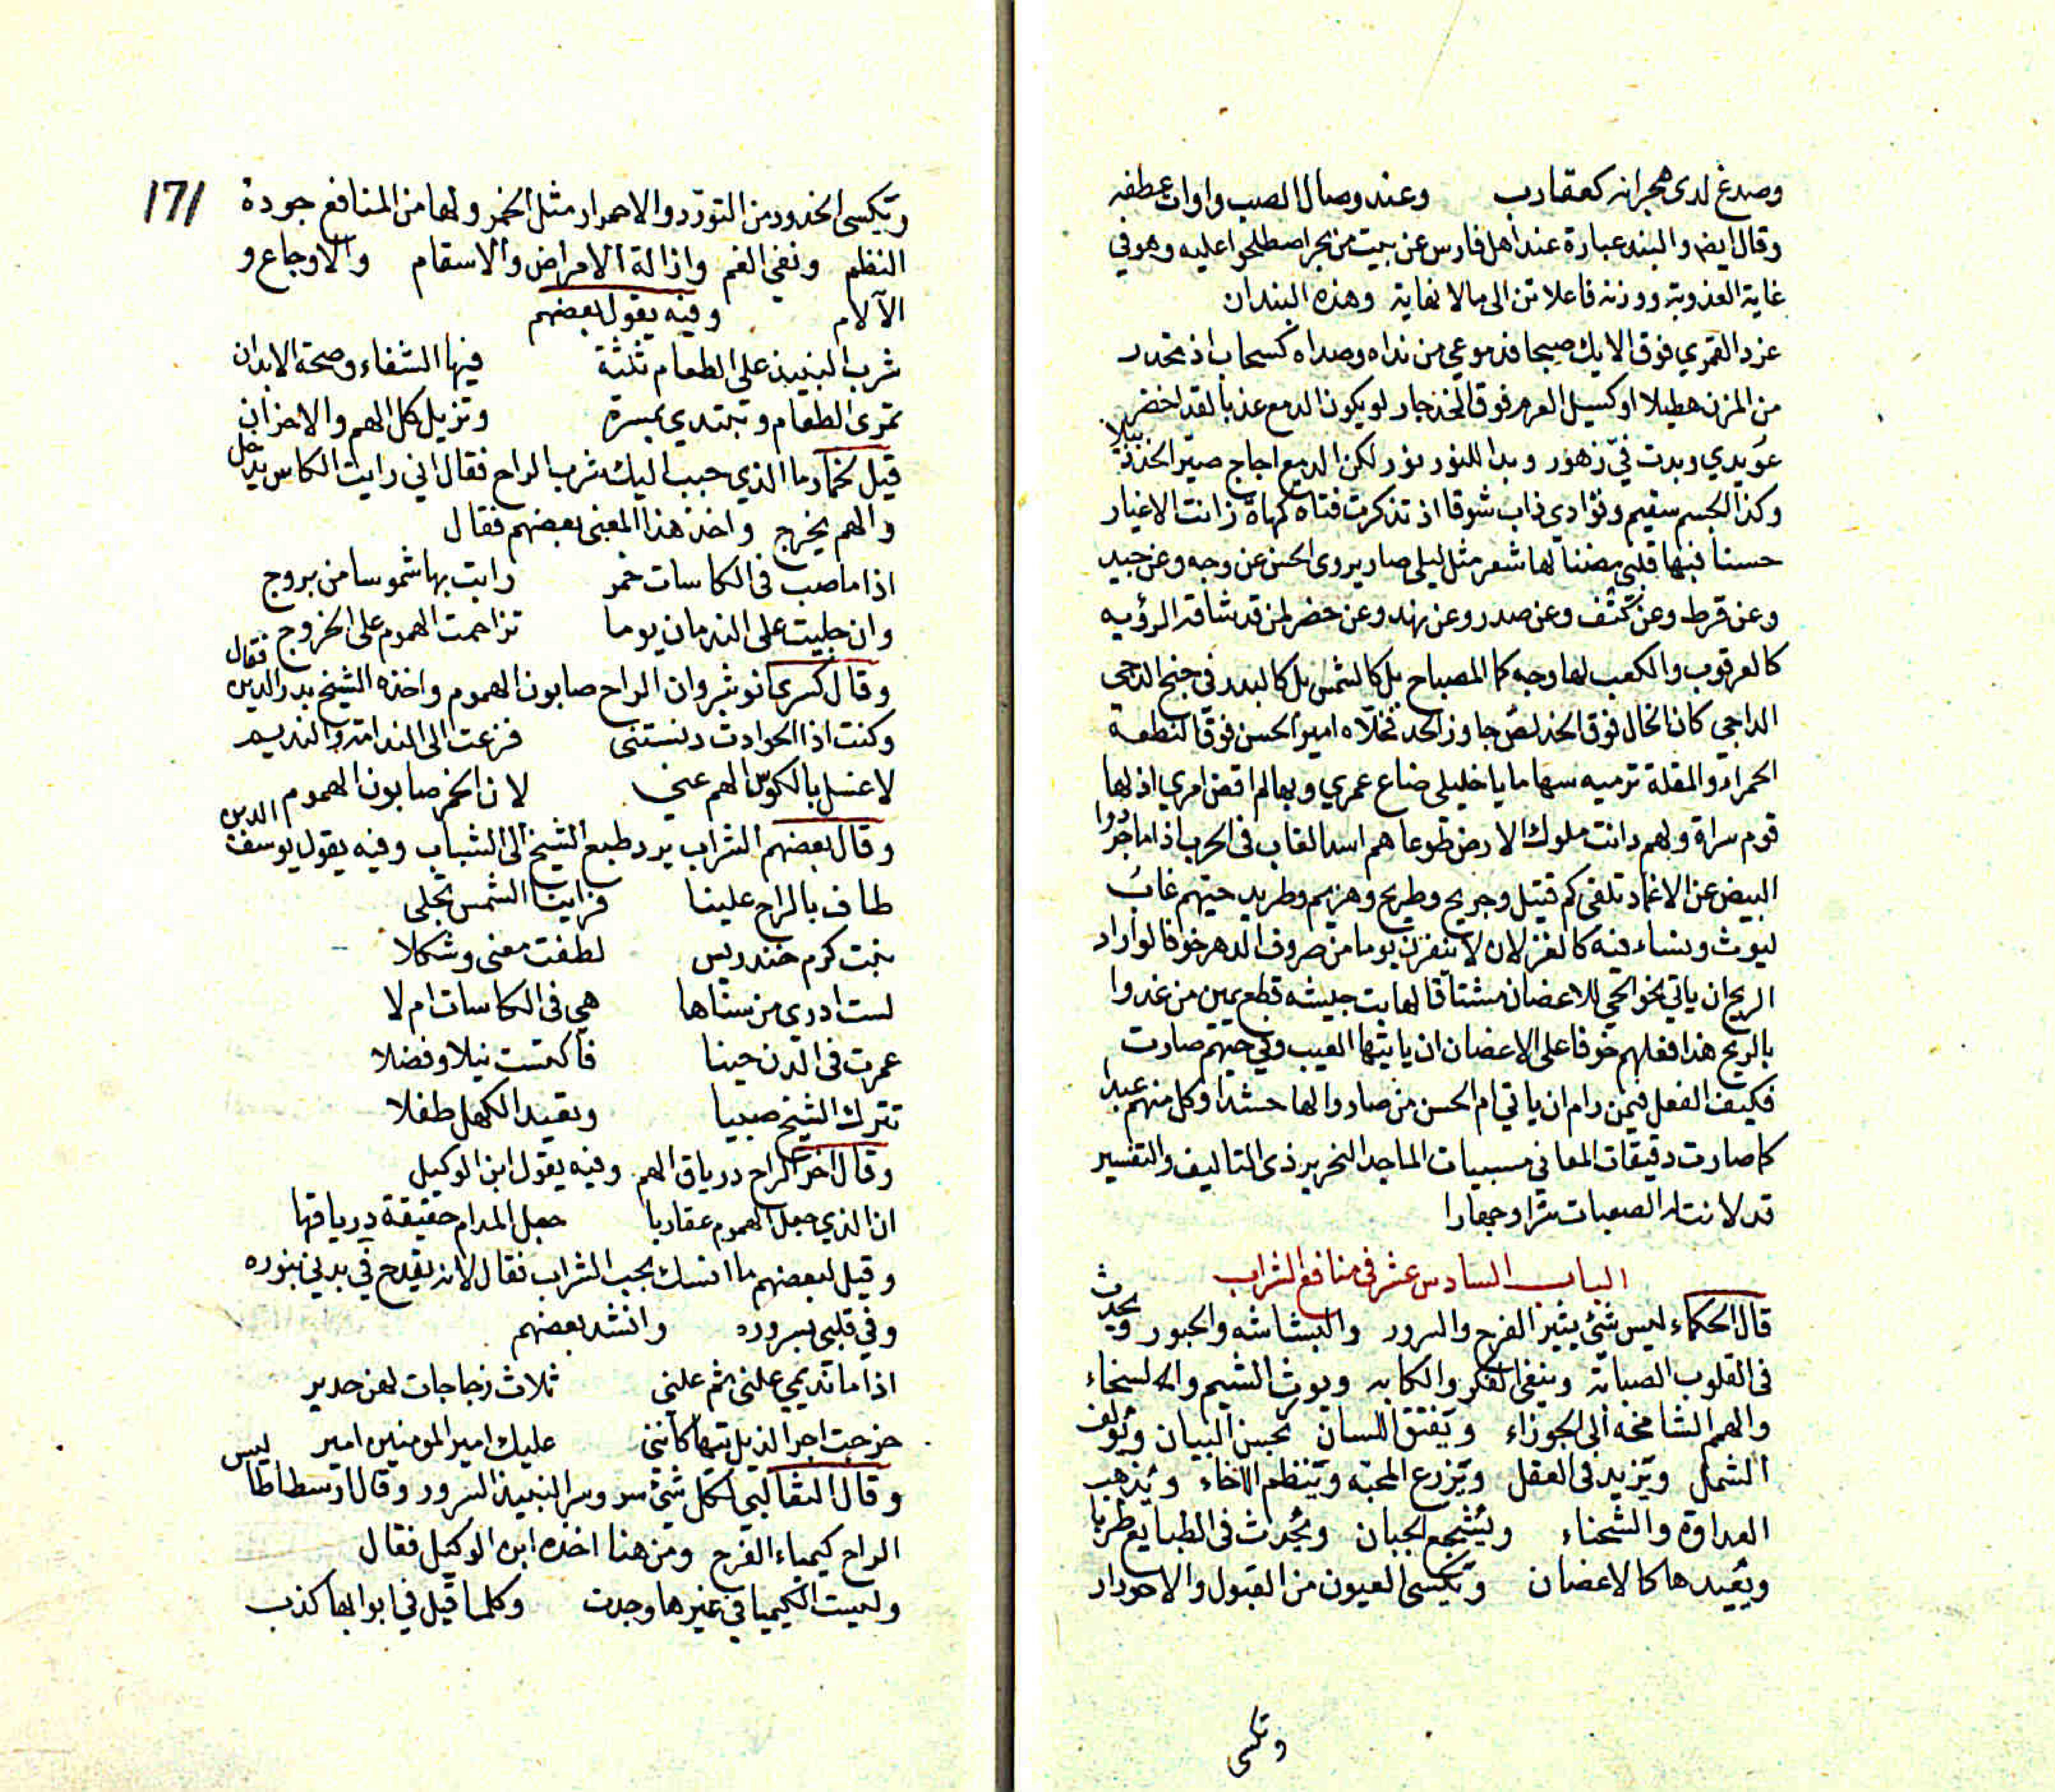 وصدغ لدى هجرانه كعقارب وعند وصال الصب واوات عطفه
وقال ايضا والبند عبارة عند اهل فارس عن بيت من بحر اصطلحوا عليه وهو في
غاية العذوبة ووزنه فاعلاتن الى مالا نهاية وهذه البندان
غرد القمري فوق الايك صبحا فدموعي من نداه وصداه كسحاب اذ تحدر
من المزن هطيلا او كسيل العرم فوق الخد جار لو يكون الدمع عذبا لقد اخضر
عويدي وبدت في زهور وبدا للنور نور لكن الدمع اجاج صير الخد
وكذا الجسم سقيم وفؤادي ذاب شوقا اذ تذكرت فتاة كمهاة زانت الاغيار
حسنا فبها قلبي مضنا لها شعر مثل ليلي صار يروى الحسن عن وجه وعن جيد
وعن قرط وعن كتف وعن صدر وعن نهد وعن خصر لمن قد شاقه الرؤيه
كالعرقوب والكعب لها وجه كما المصباح بل كالشمس بل كالبدر في جنح الدجى
الداجي كان الخال فوق الخد لص جاوز الحد فخلاه امير الحسن فوق النطعة
الحمراء والمقلة ترميه سهاما يا خليلي ضاع عمري وبها لم اقض امري اذ لها
قوم سراة ولهم دانت ملوك الارض طوعا هم اسد الغاب في الحرب اذا ما جردوا
البيض عن الاغماد تلقى كم قتيل وجريح وطريح وهزيم وطريد حيهم غاب
ليوث ونساء فيه كالغزلان لا ينفرن يوما من صروف الدهر خوفا لو اراد
الريح ان ياتي نحو الحي للاغصان مشتاقا لهابت جيشه قطع يمين من غدوا
بالريح هذا فعلهم خوفا على الاغصان ان ياتيها العيب وفي حيهم صارت
فكيف الفعل فيمن رام ان ياتي ام الحسن من صاروا لها حشدا وكل منهم عبدا
كما صارت دقيقات المعاني مسبيات الماجد النحرير ذي التاليف والتفسير
قد لانت له الصعبات سرا وجهارا
الباب السادس عشر في منافع الشراب
قال الحكماء ليس شيء يثير الفرح والسرور والبشاشه والحبور ويحدث
في القلوب الصبابة وينفي الفكر والكابه ويورث الشيم والسخاء
والهمم الشامخه الى الجوزاء ويفتق اللسان بحسن البيان ويؤلف
الشمل ويزيد في العقل ويزرع المحبه وينظم الاخاء ويذهب
العداوة والشحناء ويشجع الجبان ويحدث في الطبايع طربا
ويميدها كالاغصان وتكسى العيون من القبول والاحورار
وتكسى
171
وتكسى الخدود من التورد والاحمرار مثل الخمر ولها من المنافع جودة
النظم ونفي الغم وازالة الامراض والاسقام والاوجاع و
الآلام وفيه يقول بعضهم
شرب النبيذ على الطعام ثلثة فيها الشفاء وصحة الابدان
تمرى الطعام وتبتدي بمسرة وتزيل كل الهم والاحزان
قيل لخمار ما الذي حبب اليك شرب الراح فقال اني رايت الكاس يدخل
والهم يخرج واخذ هذا المعنى بعضهم فقال
اذا ما صب في الكاسات خمر رايت بها شموسا من بروج
وان جليت على الندمان يوما تزاحمت الهموم على الخروج
وقال كسرى انوشروان الراح صابون الهموم واخذه الشيخ بدر الدين فقال
وكنت اذا الحوادث دنستني فزعت الى الندامة والنديم
لاغسل بالكوس الهم عني لان الخمر صابون الهموم
وقال بعضهم الشراب يرد طبع الشيخ الى الشباب وفيه يقول يوسف الدين
طاف بالراح علينا فراينا الشمس تجلى
بنت كرم خندريس لطفت معنى وشكلا
لست ادرى من سناها هي في الكاسات ام لا
عمرت في الدن حينا فاكتست نيلا وفضلا
تترك الشيخ صبيا وتعيد الكهل طفلا
وقال آخر الراح درياق الهم وفيه يقول ابن الوكيل
ان الذي جعل الهموم عقاربا جعل المدام حقيقة درياقها
وقيل لبعضهم ما انسك بحب الشراب فقال لانه يقدح في بدني بنوره
وفي قلبي بسروره وانشد بعضهم
اذا ما نديمي علني ثم علني ثلاث زجاجات لهن هدير
خرجت اجر الذيل تيها كانني عليك امير المومنين امير
وقال الثعالبي لكل شيء سر وسر النبيذ السرور وقال ارسطاطاليس
الراح كيمياء الفرح ومن هنا اخذه ابن الوكيل فقال
وليست الكيميا في غيرها وجدت وكلما قيل في ابوابها كذب